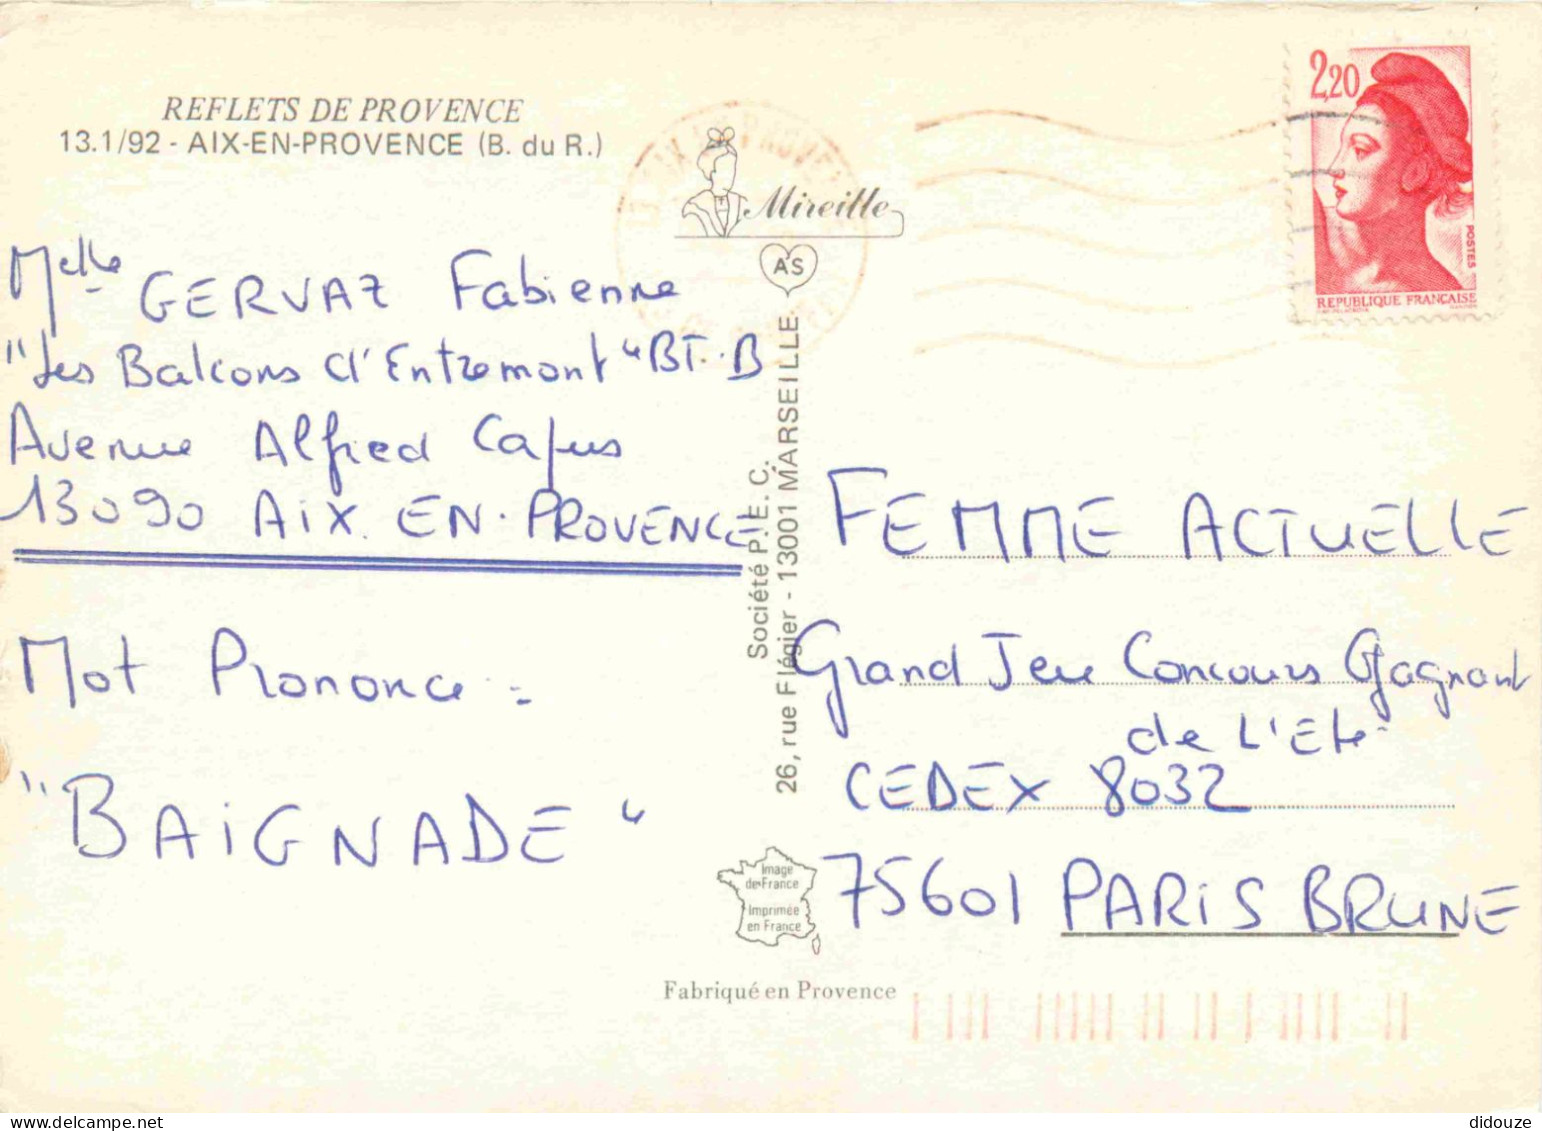 REFLETS DE PROVENCE
13.1/92 - AIX-EN-PROVENCE (B. du R.)
Mireille
AS
2,20
POSTES
REPUBLIQUE FRANÇAISE
Melle GERVAZ Fabienne
"Les Balcons d'Entremont" BT. B
Avenue Alfred Capus
13090 AIX. EN. PROVENCE
Mot Prononce =
"BAIGNADE"
Société P.I.E.C.
26, rue Flégier - 13001 MARSEILLE
FEMME ACTUELLE
Grand Jeu Concours Gagnant
de L'Eté
CEDEX 8032
75601 PARIS BRUNE
Image
de France
Imprimée
en France
Fabriqué en Provence
didouze